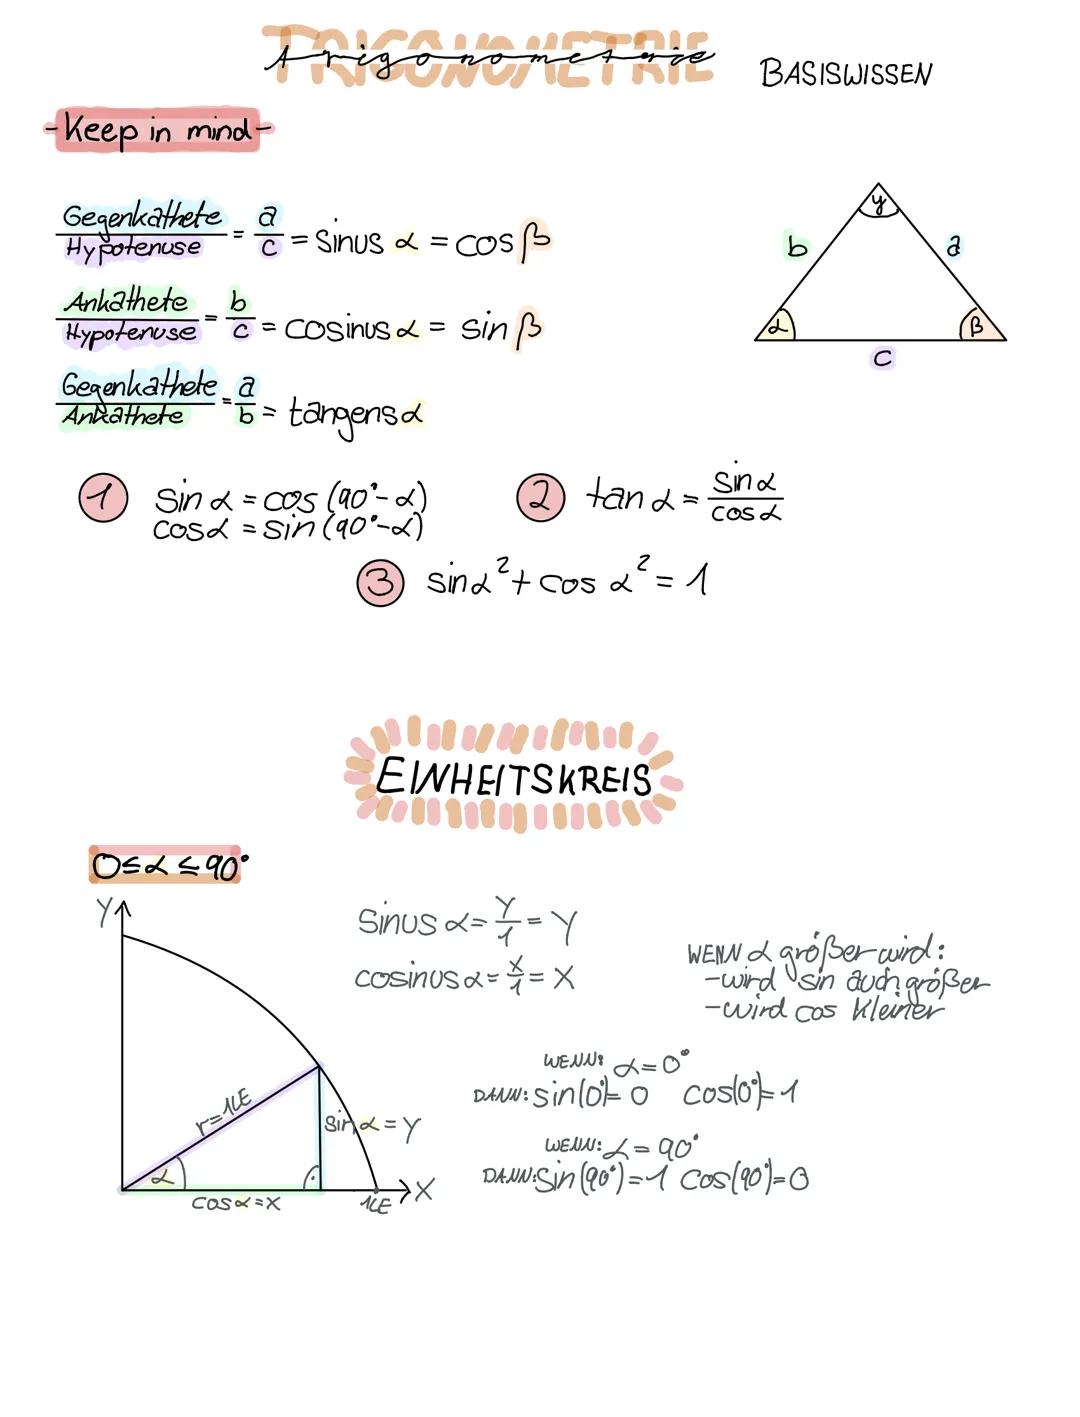 TRIGONOMETRIE
Trigonometrie BASISWISSEN
-Keep in mind-
Gegenkathete/Hypotenuse = a/c = Sinus α = cos β
Ankathete/Hypotenuse = b/c = cosinus α = sin β
Gegenkathete/Ankathete = a/b = tangens α
y
b
a
α
β
c
① sin α = cos (90°-α)
cos α = sin (90°-α)
② tan α = sin α/cos α
③ sin α² + cos α² = 1
EINHEITSKREIS
0≤α≤90°
Y
r=1LE
α
sin α = Y
cos α = X
1LE
X
Sinus α = Y/1 = Y
cosinus α = X/1 = X
WENN α größer wird:
-wird sin auch größer
-wird cos kleiner
WENN: α=0°
DANN: sin(0°)=0 cos(0°)=1
WENN: α=90°
DANN: Sin(90°)=1 cos(90°)=0